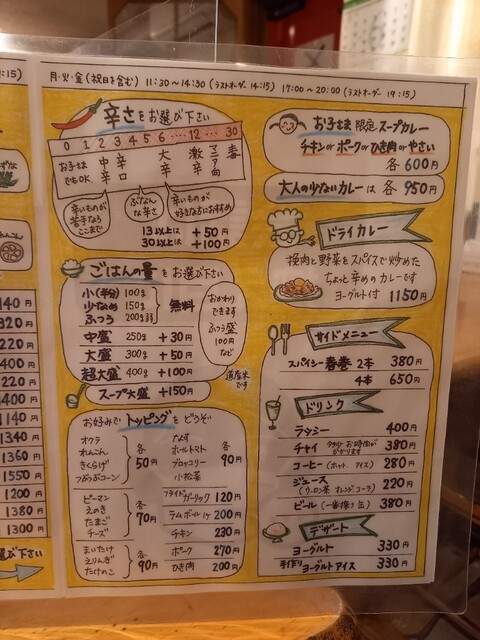 9:15)
月・火・金(祝日を含む) 11:30〜14:30 (ラストオーダー 14:15) 17:00〜20:00 (ラストオーダー 19:15)
辛さをお選び下さい
0 1 2 3 4 5 6 ‥‥ 12 ‥ 30
お子さまでもOK
中辛
辛口
大辛
激辛
マニア向
辛いものが苦手なら
ここまで
ぶなんな辛さ
辛いものが好きな方におすすめ
13以上は +50円
30以上は +100円
ごはんの量をお選び下さい
小(半分) 100g
少なめ 150g
ふつう 200g弱
無料
中盛 250g +30円
大盛 300g +50円
超大盛 400g +100円
スープ大盛 +150円
おかわりできます
ふつう盛
100円
など
道産米です
お好みでトッピングをどうぞ
オクラ
れんこん
きくらげ
つぶつぶコーン
各50円
ピーマン
えのき
たまご
チーズ
各70円
まいたけ
えりんぎ
たけのこ
各90円
なす
ホールトマト
ブロッコリー
小松菜
各90円
フライドガーリック 120円
ラムボール 1ケ 200円
チキン 230円
ポーク 270円
ひき肉 200円
お子さま限定スープカレー
チキンorポークorひき肉orやさい
各600円
大人の少ないカレーは 各950円
ドライカレー
挽肉と野菜をスパイスで炒めた
ちょっと辛めのカレーです
ヨーグルト付 1150円
サイドメニュー
スパイシー春巻 2本 380円
4本 650円
ドリンク
ラッシー 400円
チャイ 380円
コーヒー(ホット、アイス) 280円
ジュース 220円
(ウーロン茶 オレンジ コーラ)
ビール(一番搾り缶) 380円
デザート
ヨーグルト 330円
手作りヨーグルトアイス 330円
140円
320円
220円
400円
220円
1400円
1140円
1340円
1360円
1550円
1200円
1380円
1300円
選び下さい